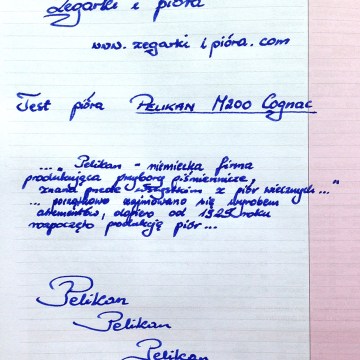 Zegarki i pióra
www.zegarki i pióra.com
Test pióra PELIKAN M200 Cognac
... "Pelikan - niemiecka firma
produkująca przybory piśmiennicze,
znana przede wszystkim z piór wiecznych ..."
... początkowo zajmowano się wyrobem
atramentów, dopiero od 1929 roku
rozpoczęto produkcję piór ...
Pelikan
Pelikan
Pelikan